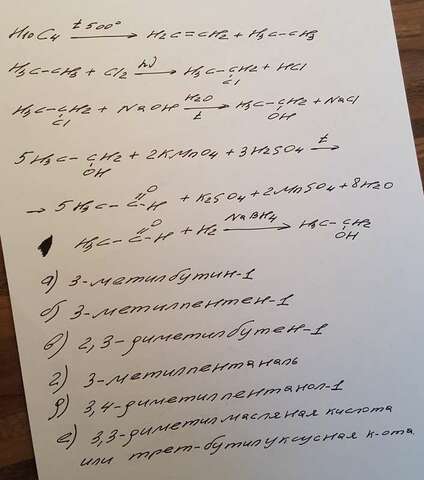 H10C4 t 500° → H2C=CH2 + H3C-CH3
H3C-CH3 + Cl2 hν → H3C-CH2 + HCl
Cl
H3C-CH2 + NaOH H2O → H3C-CH2 + NaCl
Cl t OH
5H3C-CH2 + 2KMnO4 + 3H2SO4 t →
OH
→ 5H3C-C-H + K2SO4 + 2MnSO4 + 8H2O
O
H3C-C-H + H2 NaBH4 → H3C-CH2
O OH
а) 3-метилбутин-1
б) 3-метилпентен-1
в) 2,3-диметилбутен-1
г) 3-метилпентаналь
д) 3,4-диметилпентанол-1
е) 3,3-диметилмасляная кислота
или трет-бутилуксусная к-ота